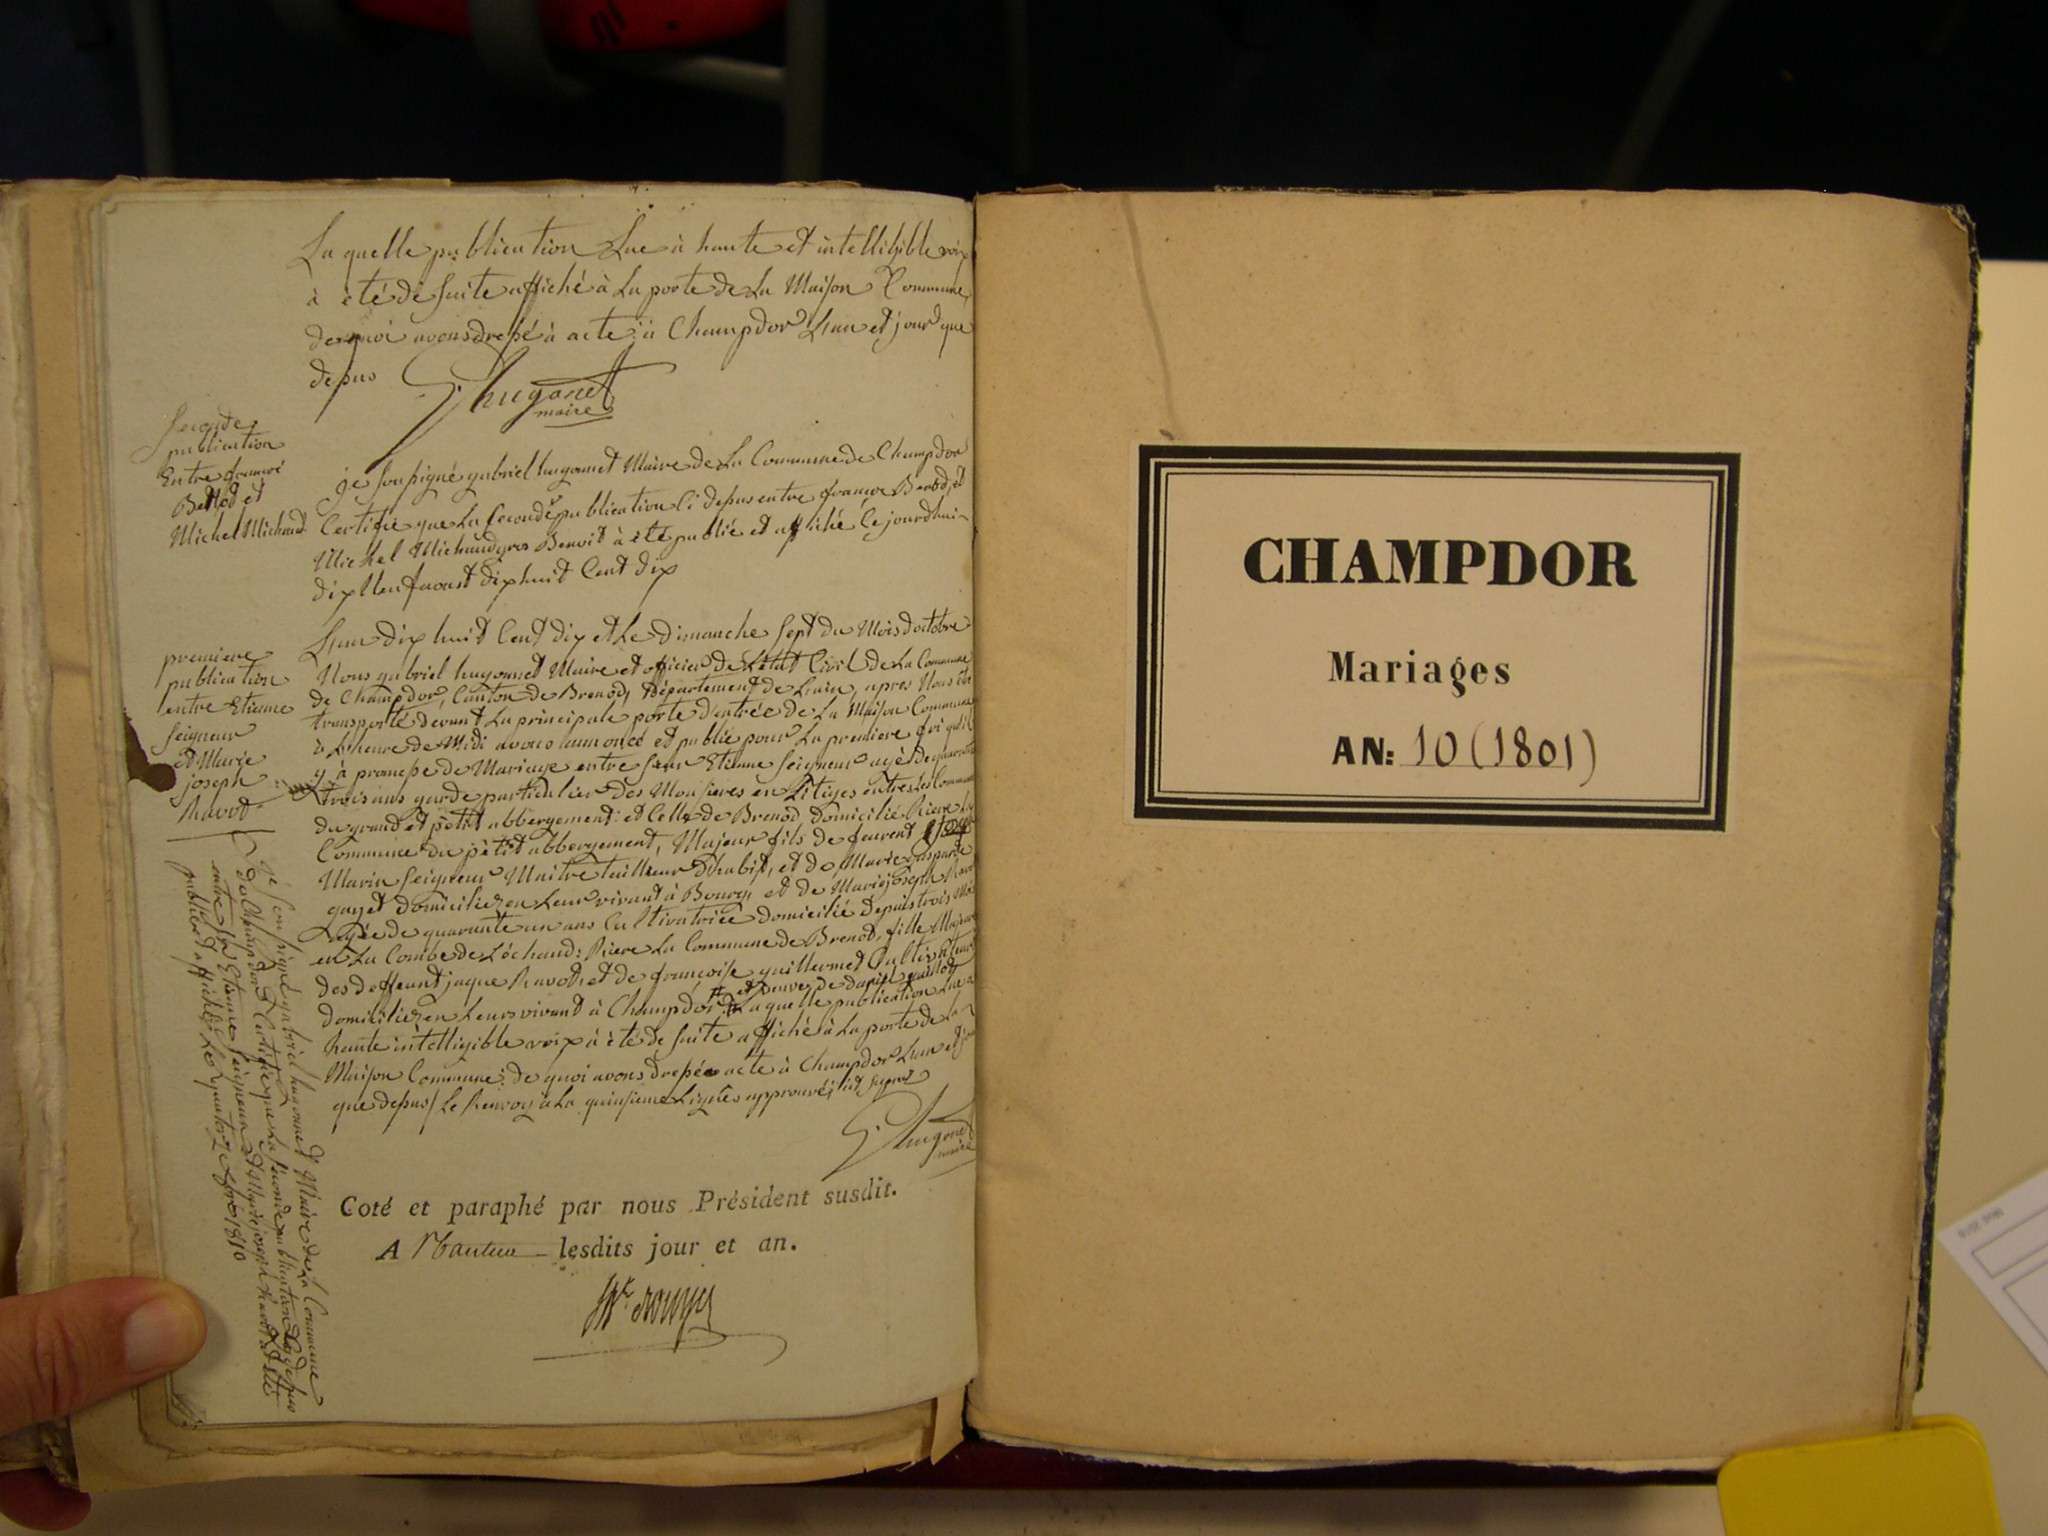 La quelle publication Lue à haute et intelligible voix
à été de suite affiché à La porte de La Maison Commune,
de quoi avons dressé acte à Champdor L'an et jour que
dessus
G. hugonet
maire
Seconde
publication
Entre françoi
Berrod et
Michel Michaud
je soussigné gabriel hugonnet Maire de La Commune de Champdor
Certifie que La seconde publication Ci dessus entre françoi Berod, et
Michel Michaud gros Benoit à été publié et affiché Cejourdhui
dix Neuf aoust dix huit Cent dix
premiere
publication
entre Etienne
seigneur
et Marie
joseph
Ravot
L'an dix huit Cent dix et Le Dimanche sept du Mois doctobre
Nous gabriel hugonnet Maire et officier de L'état Civil de La Commune
de Champdor, Canton de Brenod, Département de L'ain, apres Nous être
transporté devant La principale porte d'entrée de La Maison Commune
à L'heure de Midi avons annoncé et publié pour La premiere foi qu'il
y à promesse de Mariage entre sieur Etienne seigneur agé de quarante
trois ans garde particulier des en Litiges entre Les Communes
du grand et petit abbergement: et Celle de Brenod domicilié Riere La
Commune du petit abbergement, Majeur fils de feurent
Marin seigneur Maitre tailleur D'habit, et de Marie gasparde
gayet domiciliez en Leur vivant à Bourg, et de Marie joseph Ravot
agée de quarante un ans Cultivatrice domicilié depuis trois Mois
en La Combe de Léchaud: Riere La Commune de Brenod, fille Majeure
des deffeunt jaque Ravot et de françoise guillermet Cultivateur
domiciliez en Leurs vivant à Champdor # et veuve de daniel guillot La quelle publication Lue à
haute intelligible voix à été de suite affiché à La porte de La
Maison Commune: de quoi avons dressé acte à Champdor L'an et jour
que dessus / Le Renvoy à La quinsieme Lignes approuvé;
G. hugonet
maire
je soussigné gabriel hugonnet Maire de La Commune
de Champdor Certifie que La seconde publication Cy dessus
entre sr Etienne seigneur et Marie joseph Ravot à été
publié et affiché Le quatorze 8bre 1810
Coté et paraphé par nous Président susdit.
A Nantua lesdits jour et an.
CHAMPDOR
Mariages
AN: 10 (1801)